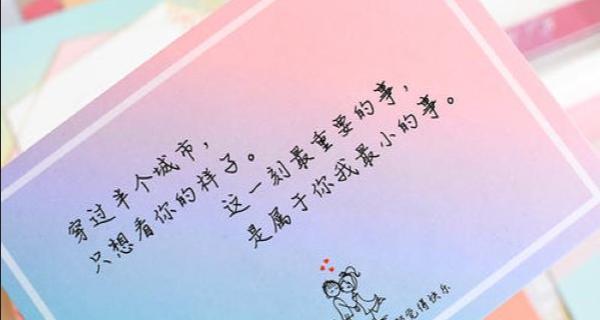 穿过半个城市，
只想看你的样子。
这一刻最重要的事，
是属于你我最小的事。
觉得快乐